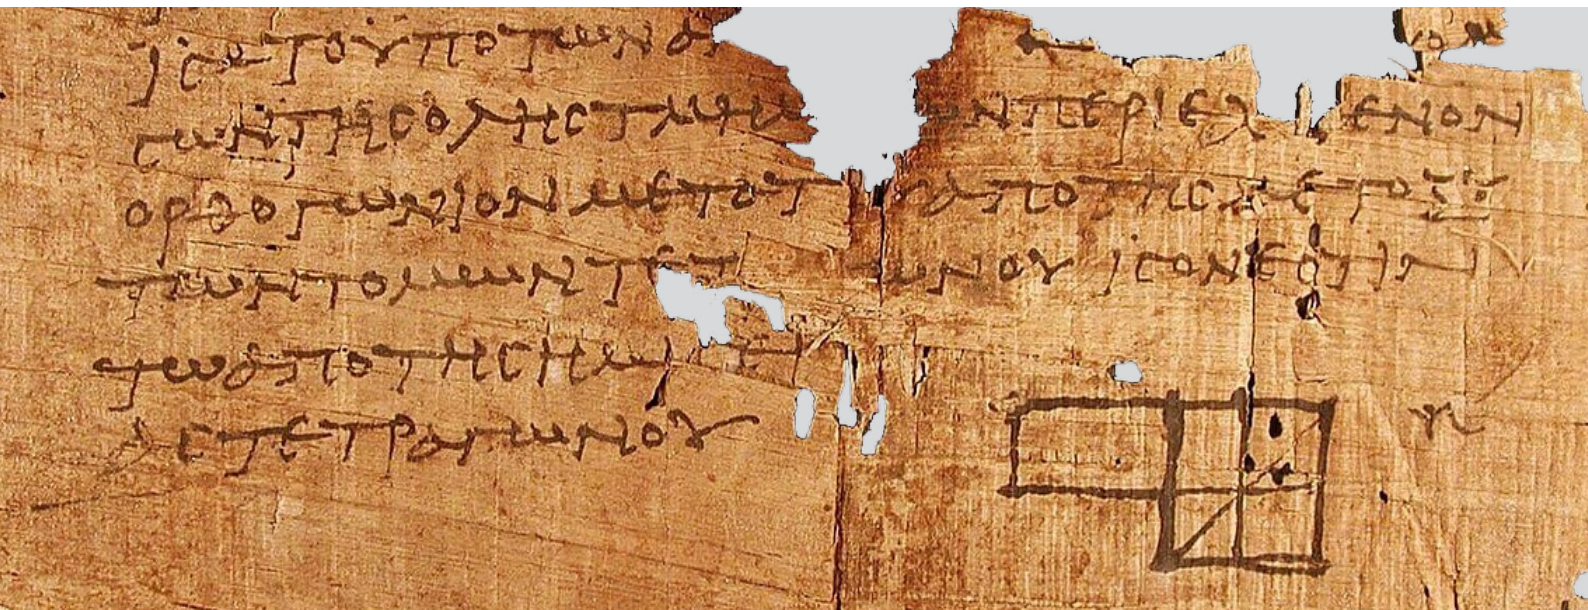 ΤΟ ΥΠΟ ΤΩΝ
ϹΩΝ ΤΗϹ ΟΛΗϹ ΤΜΗΜ ΩΝ ΠΕΡΙΕΧ ΕΝΟΝ
ΟΡΘΟΓΩΝΙΟΝ ΜΕΤΑ ΤΟ ΑΠΟ ΤΗϹ ΜΕΤΟΞΥ
ΤΩΝ ΤΟΜΩΝ ΤΕΤ ΩΝΟΥ ΙϹΟΝ ΕϹΤΙΝ
ΤΩ ΑΠΟ ΤΗϹ ΗΜΙϹΕΙ
ΑϹ ΤΕΤΡΑΓΩΝΟΥ